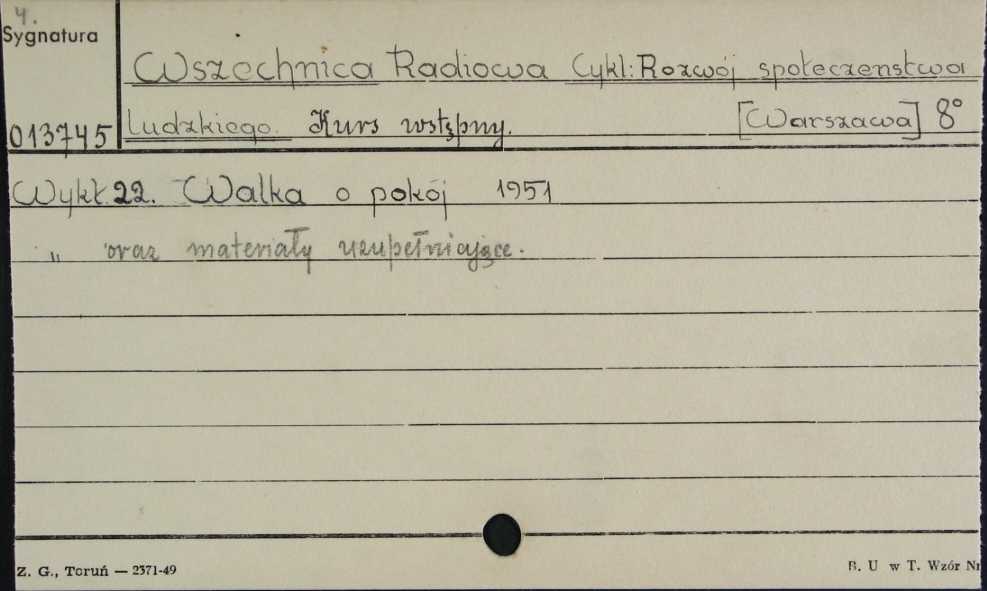 4.
Sygnatura
Wszechnica Radiowa Cykl: Rozwój społeczeństwa
013745 ludzkiego. Kurs wstępny. [Warszawa] 8°
Wykł. 22. Walka o pokój 1951
„ oraz materiały uzupełniające.
Z. G., Toruń — 2371-49
B. U w T. Wzór Nr